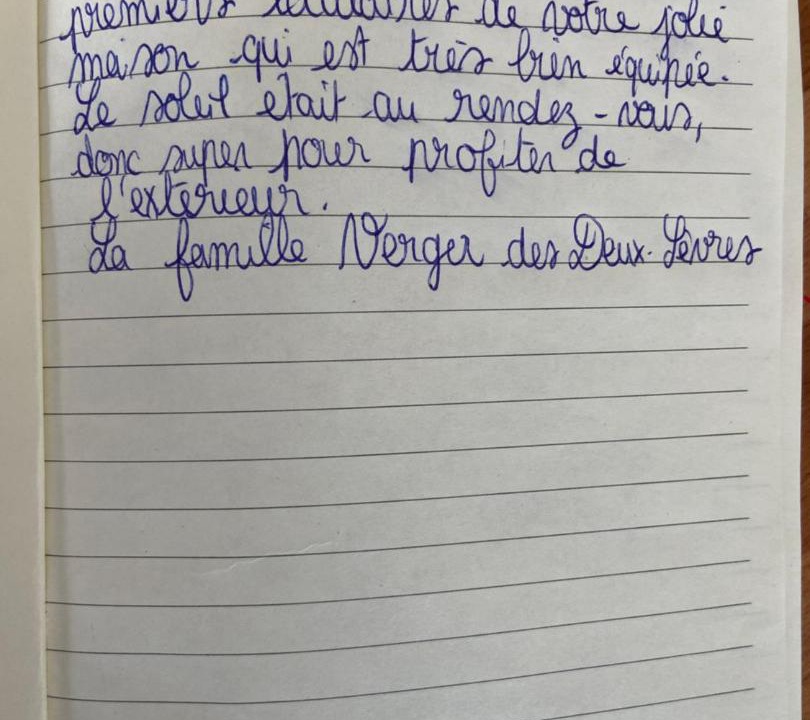 premiers locataires de votre jolie
maison qui est très bien équipée.
Le soleil était au rendez-vous,
donc super pour profiter de
l'exterieur.
La famille Verger des Deux-Sèvres